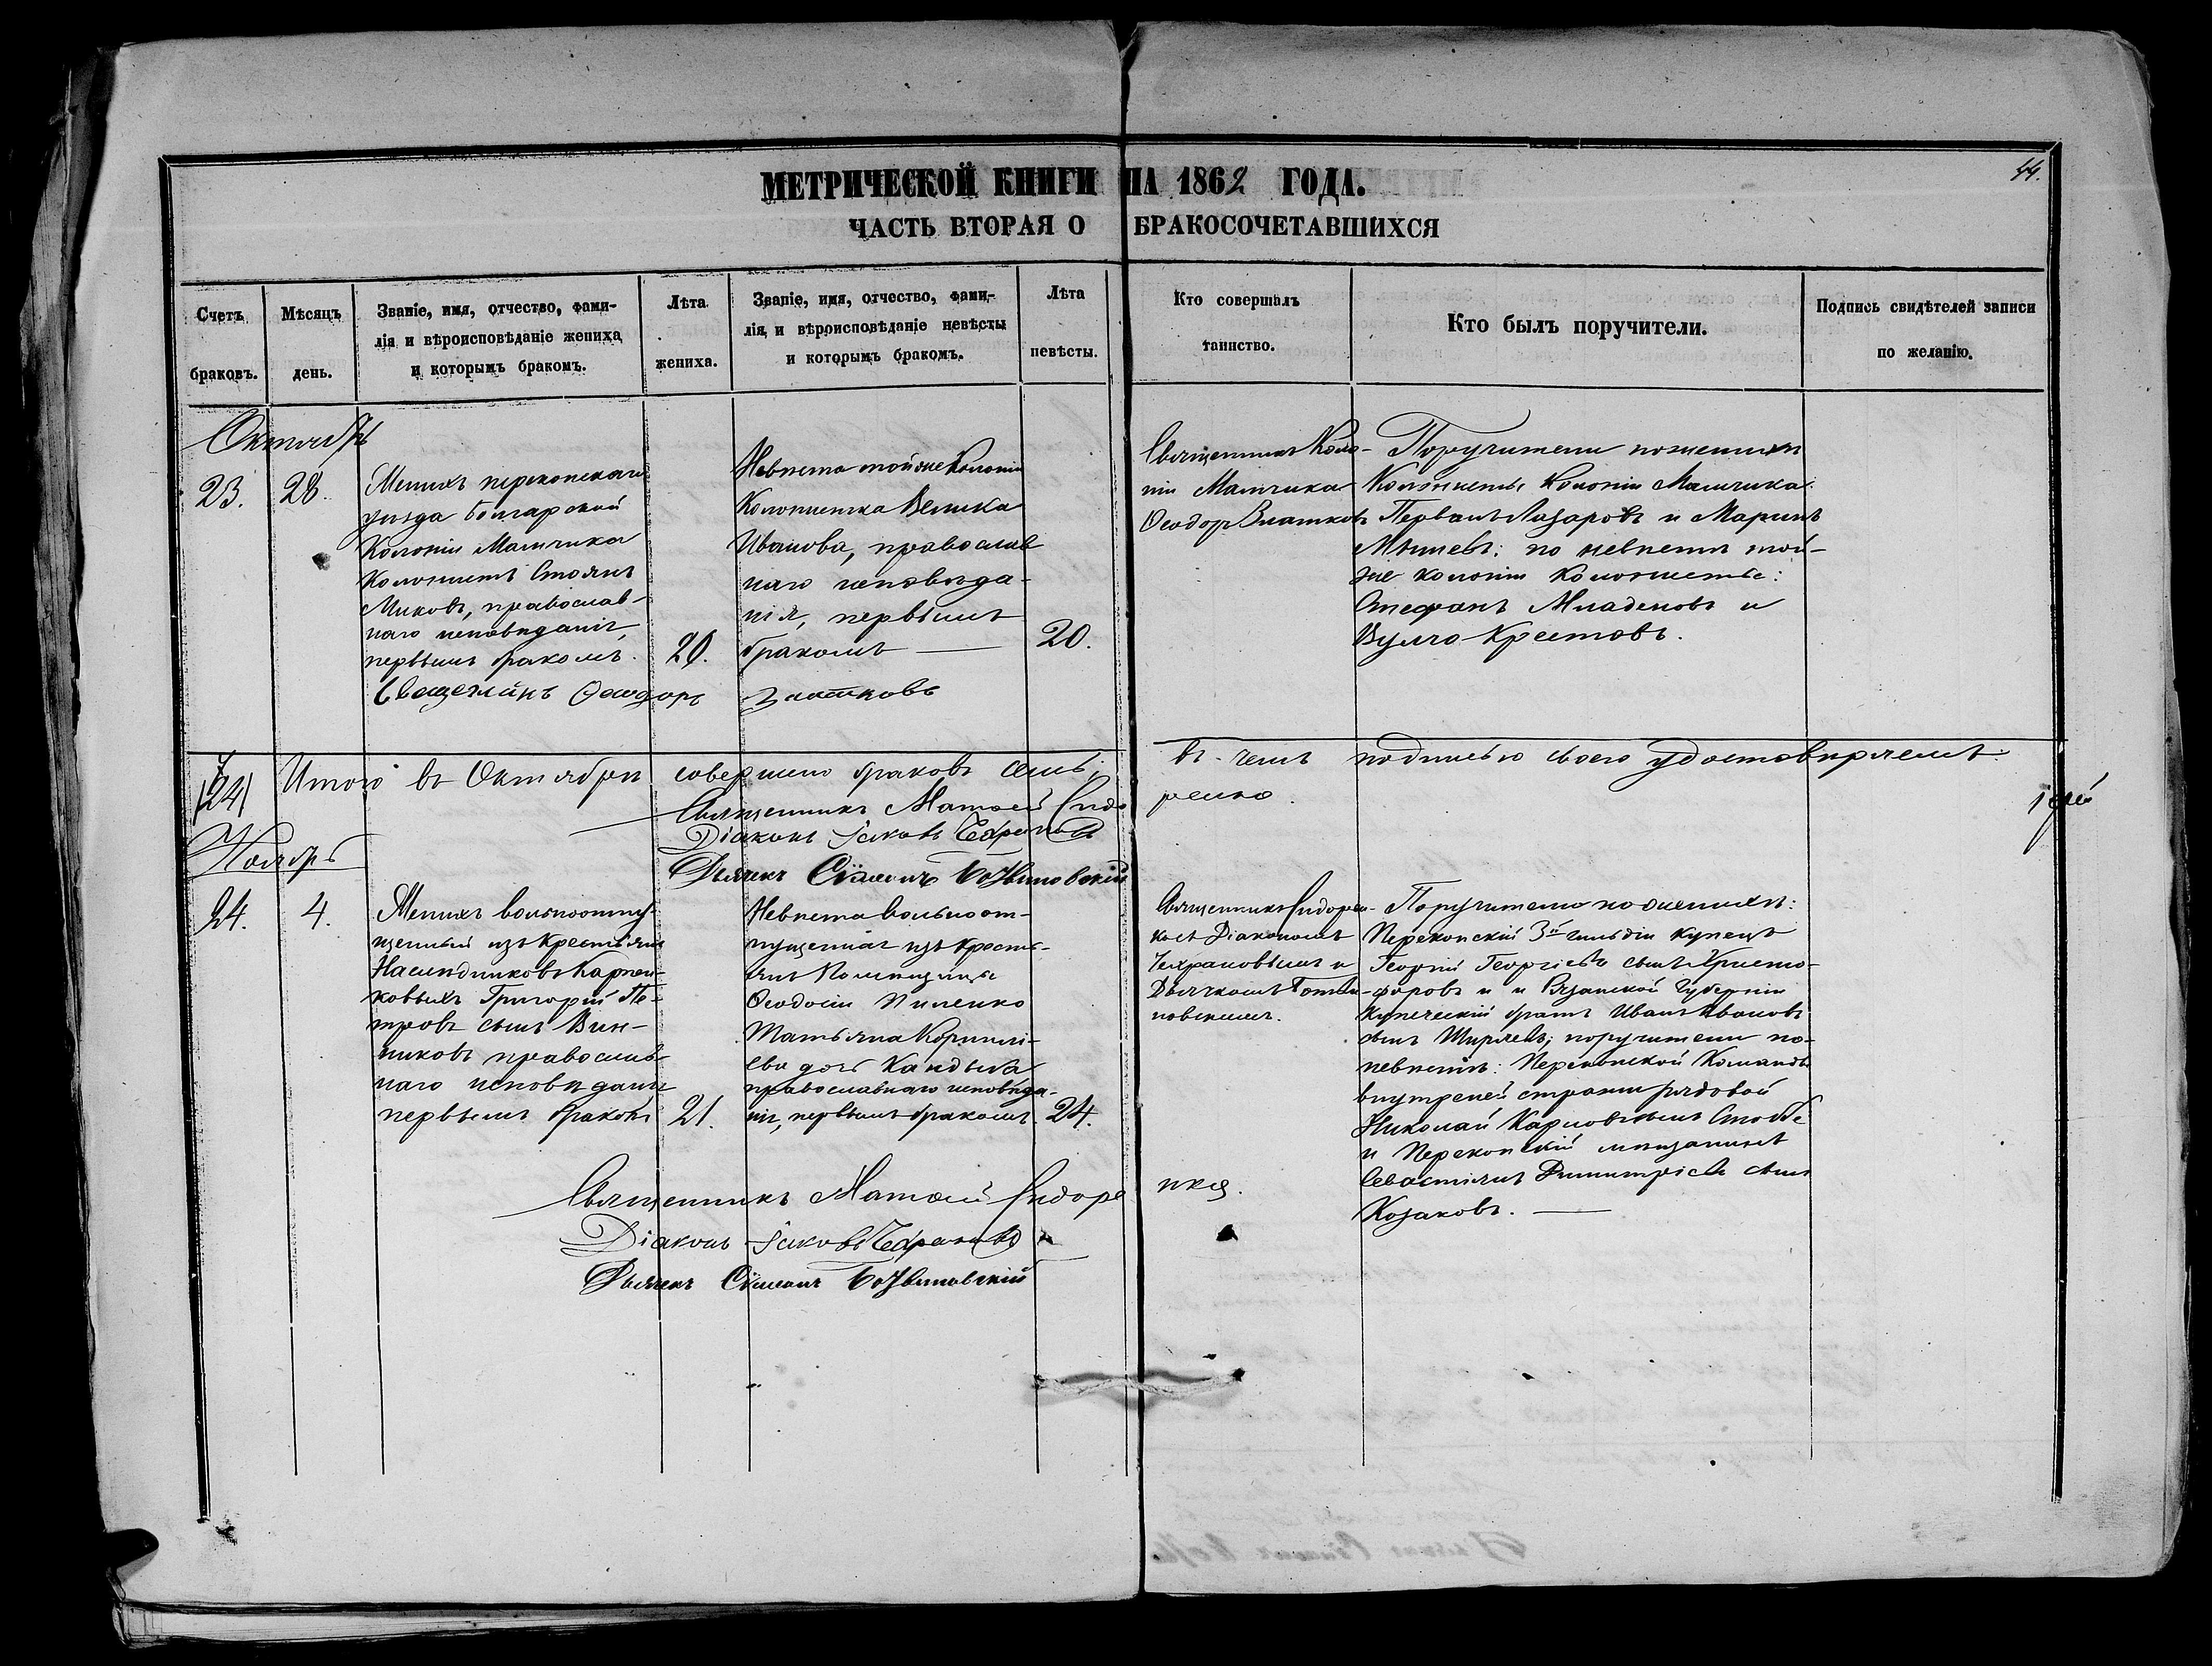 44.
МЕТРИЧЕСКОЙ КНИГИ НА 1862 ГОДА.
ЧАСТЬ ВТОРАЯ О БРАКОСОЧЕТАВШИХСЯ
Счетъ
браковъ.
Мѣсяцъ
день.
Званіе, имя, отчество, фами-
лія и вѣроисповѣданіе жениха
и которымъ бракомъ.
Лѣта
жениха.
Званіе, имя, отчество, фами-
лія, и вѣроисповѣданіе невѣсты
и которымъ бракомъ.
Лѣта
невѣсты.
Кто совершалъ
таинство.
Кто былъ поручители.
Подпись свидѣтелей записи
по желанію.
Октябрь
23.
28.
Женихъ перекопскаго
уѣзда Болгарской
Колоніи Мамчика
Колонистъ Стоянъ
Миковъ, православ-
наго исповѣданія,
первымъ бракомъ.
20.
Невѣста той же Колоніи
Колонистка Велика
Иванова, православ
наго исповѣда-
нія, первымъ
бракомъ
20.
Священникъ Коло-
ніи Мамчика
Ѳеодоръ Златковъ
Поручители по женихѣ
Колонисты Колоніи Мамчика
Перванъ Лазаровъ и Маринъ
по невѣстѣ той-
же колоніи Колонисты:
Стефанъ Младеновъ и
Вулчо Крестовъ.
Священикъ Ѳеодоръ Златковъ
7
(24)
Итого въ Октябрѣ совершено браковъ семь, въ чемъ подписью своею удостовѣряемъ:
Священникъ Матѳей Сидо ренко. іерей
Діаконъ Іаковъ
Дьячекъ Сѵмеонъ
Ноябрь
24.
4.
Женихъ вольноотпу-
щенный изъ Крестьянъ
Наслѣдниковъ Карпен-
ковыхъ Григорій Пе-
тровъ сынъ Вин-
никовъ православ-
наго исповѣданія
первымъ бракомъ
21.
Невѣста вольноот-
пущенная изъ кресть-
янъ Помѣщицы
Ѳеодосіи Пиленко
Татьяна Корнилі-
ева дочь Кандыба
православнаго исповѣда-
нія, первымъ бракомъ.
24.
Священникъ Сидорен-
ко съ Діакономъ
и
Дьячкомъ
новскимъ.
Поручители по женихѣ:
Перекопскій 3й гильдіи купецъ
Георгій Георгіевъ сынъ Христо-
форовъ и и Рязанской Губерніи
купеческій братъ Иванъ Ивановъ
сынъ Ширяевъ; поручители по
невѣстѣ: Перекопской Команды
внутреней стражи рядовой
Николай Карповъ сынъ
и Перекопскій мѣщанинъ
Севастіянъ Димитріевъ сынъ
Козаковъ.
Священникъ Матѳей Сидоре нко.
Діаконъ Іаковъ
Дьячекъ Сѵмеонъ